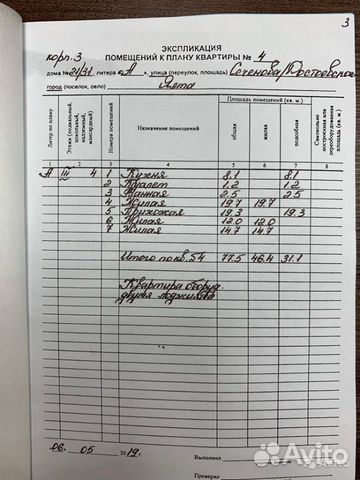 3
ЭКСПЛИКАЦИЯ
корп. 3 ПОМЕЩЕНИЙ К ПЛАНУ КВАРТИРЫ № 4
дома № 24/31, литера «А», улица (переулок, площадь) Сеченова/Достоевского
город (поселок, село) Ялта
Литер по плану
Этажи (подвальный, цокольный, надземный, мансардный)
Номера помещений
Назначение помещений
Площадь помещений (кв. м.)
общая
жилая
подсобная
Самовольно построенная или переоборудованная площадь (кв. м.)
1 2 3 4 5 6 7 8
А III 4 1 Кухня 8.1 8.1
2 Туалет 1.2 1.2
3 Ванная 2.5 2.5
4 Жилая 19.7 19.7
5 Прихожая 19.3 19.3
6 Жилая 12.0 12.0
7 Жилая 14.7 14.7
Итого по кв. 54 77.5 46.4 31.1
Квартира оборуд.
двумя
06. 05 2019 г.
Выполнил
Проверил
Avito